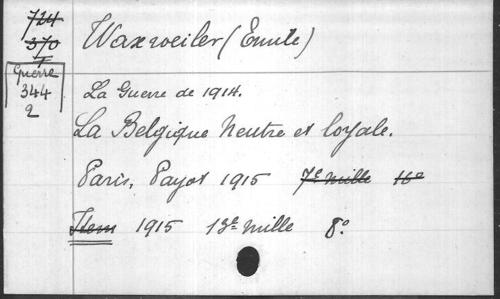 724
370
I
Guerre
344
2
Waxweiler (Emile)
La Guerre de 1914.
La Belgique Neutre et loyale.
Paris, Payot 1915 7e mille 16o
Item 1915 13e mille 8o